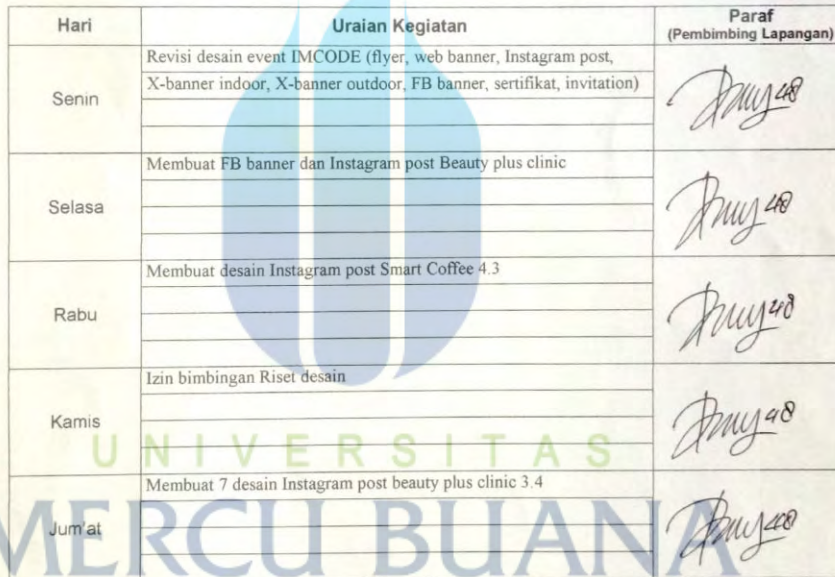 Hari
Uraian Kegiatan
Paraf
(Pembimbing Lapangan)
Senin
Revisi desain event IMCODE (flyer, web banner, Instagram post,
X-banner indoor, X-banner outdoor, FB banner, sertifikat, invitation)
Selasa
Membuat FB banner dan Instagram post Beauty plus clinic
Rabu
Membuat desain Instagram post Smart Coffee 4.3
Kamis
Izin bimbingan Riset desain
UNIVERSITAS
Jum'at
Membuat 7 desain Instagram post beauty plus clinic 3.4
MERCU BUANA